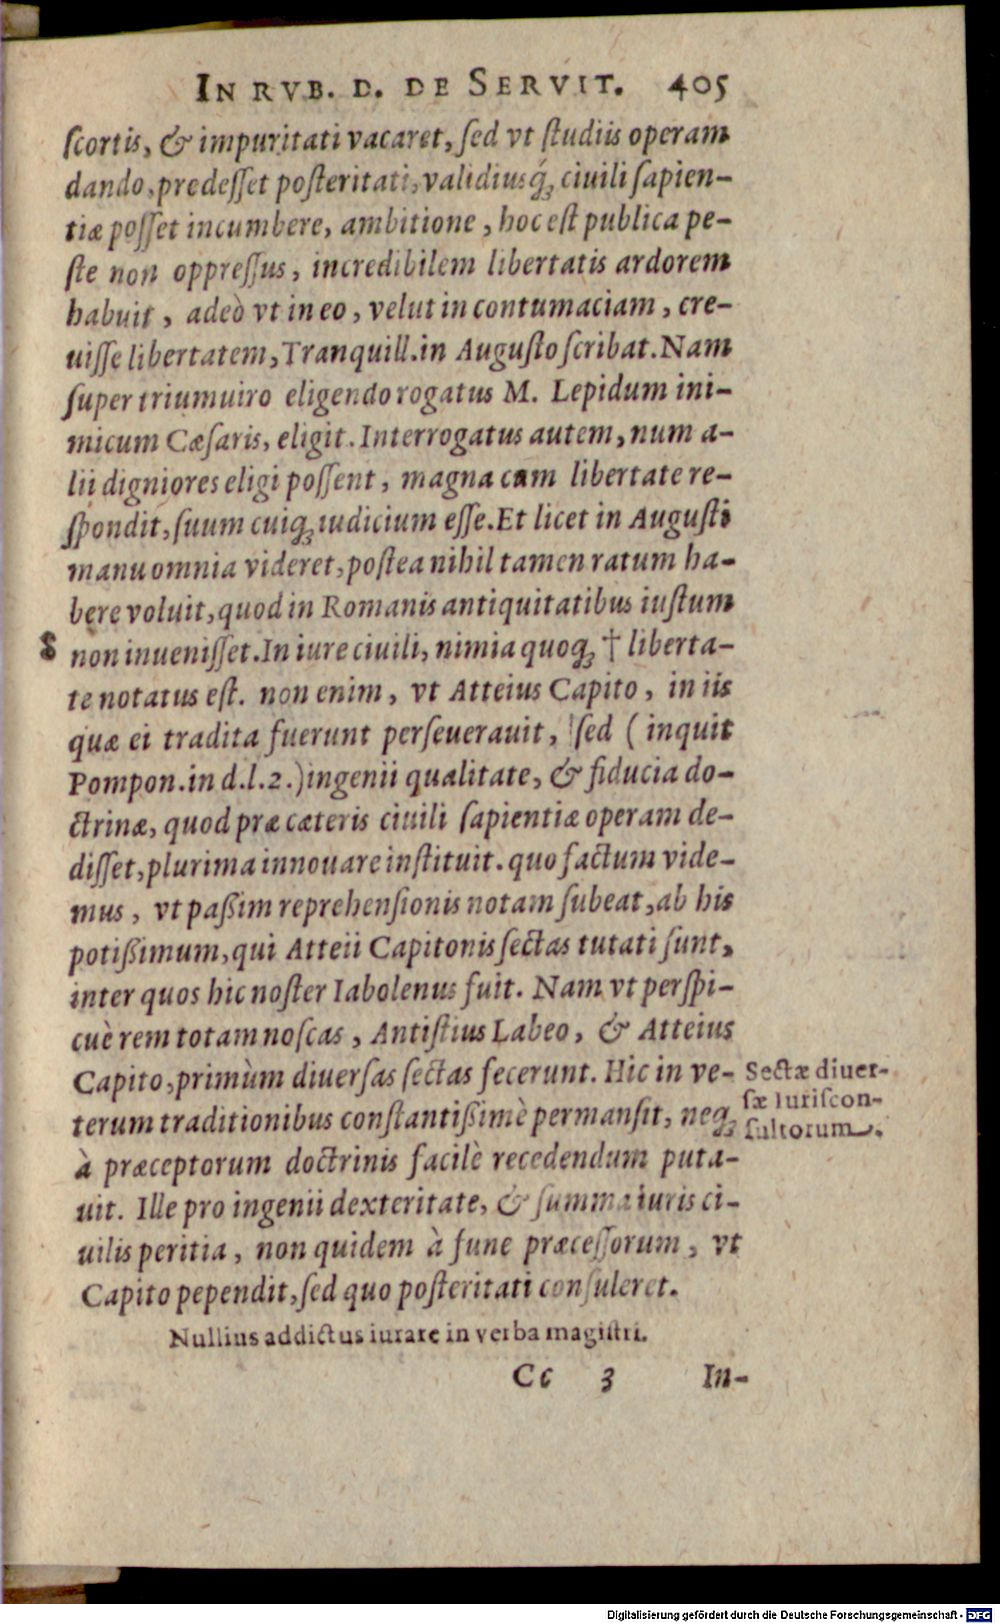 IN RVB. D. DE SERVIT. 405
ſcortis, & impuritati vacaret, ſed vt ſtudiis operam
dando, predeſſet poſteritati, validiusq́ꝫ ciuili ſapien-
tiæ poſſet incumbere, ambitione, hoc eſt publica pe-
ſte non oppreſſus, incredibilem libertatis ardorem
habuit, adeò vt in eo, velut in contumaciam, cre-
uiſſe libertatem, Tranquill. in Auguſto ſcribat. Nam
ſuper triumuiro eligendo rogatus M. Lepidum ini-
micum Cæſaris, eligit. Interrogatus autem, num a-
lii digniores eligi poſſent, magna cum libertate re-
ſpondit, ſuum cuiqꝫ iudicium eſſe. Et licet in Auguſti
manu omnia videret, poſtea nihil tamen ratum ha-
bere voluit, quod in Romanis antiquitatibus iuſtum
8 non inueniſſet. In iure ciuili, nimia quoqꝫ † liberta-
te notatus eſt. non enim, vt Atteius Capito, in iis
quæ ei tradita fuerunt perſeuerauit, ſed ( inquit
Pompon. in d.l.2.) ingenii qualitate, & fiducia do-
ctrinæ, quod præ cæteris ciuili ſapientiæ operam de-
diſſet, plurima innouare inſtituit. quo factum vide-
mus, vt paßim reprehenſionis notam ſubeat, ab his
potißimum, qui Atteii Capitonis ſectas tutati ſunt,
inter quos hic noſter Iabolenus fuit. Nam vt perſpi-
cuè rem totam noſcas, Antiſtius Labeo, & Atteius
Capito, primùm diuerſas ſectas fecerunt. Hic in ve-
terum traditionibus conſtantißimè permanſit, neqꝫ
à præceptorum doctrinis facilè recedendum puta-
uit. Ille pro ingenii dexteritate, & ſumma iuris ci-
uilis peritia, non quidem à fune præceſſorum, vt
Capito pependit, ſed quo poſteritati conſuleret.
Nullius addictus iurare in verba magiſtri.
Cc 3 In-
Sectæ diuer-
ſæ Iuriſcon-
ſultorum.
Digitalisierung gefördert durch die Deutsche Forschungsgemeinschaft - DFG